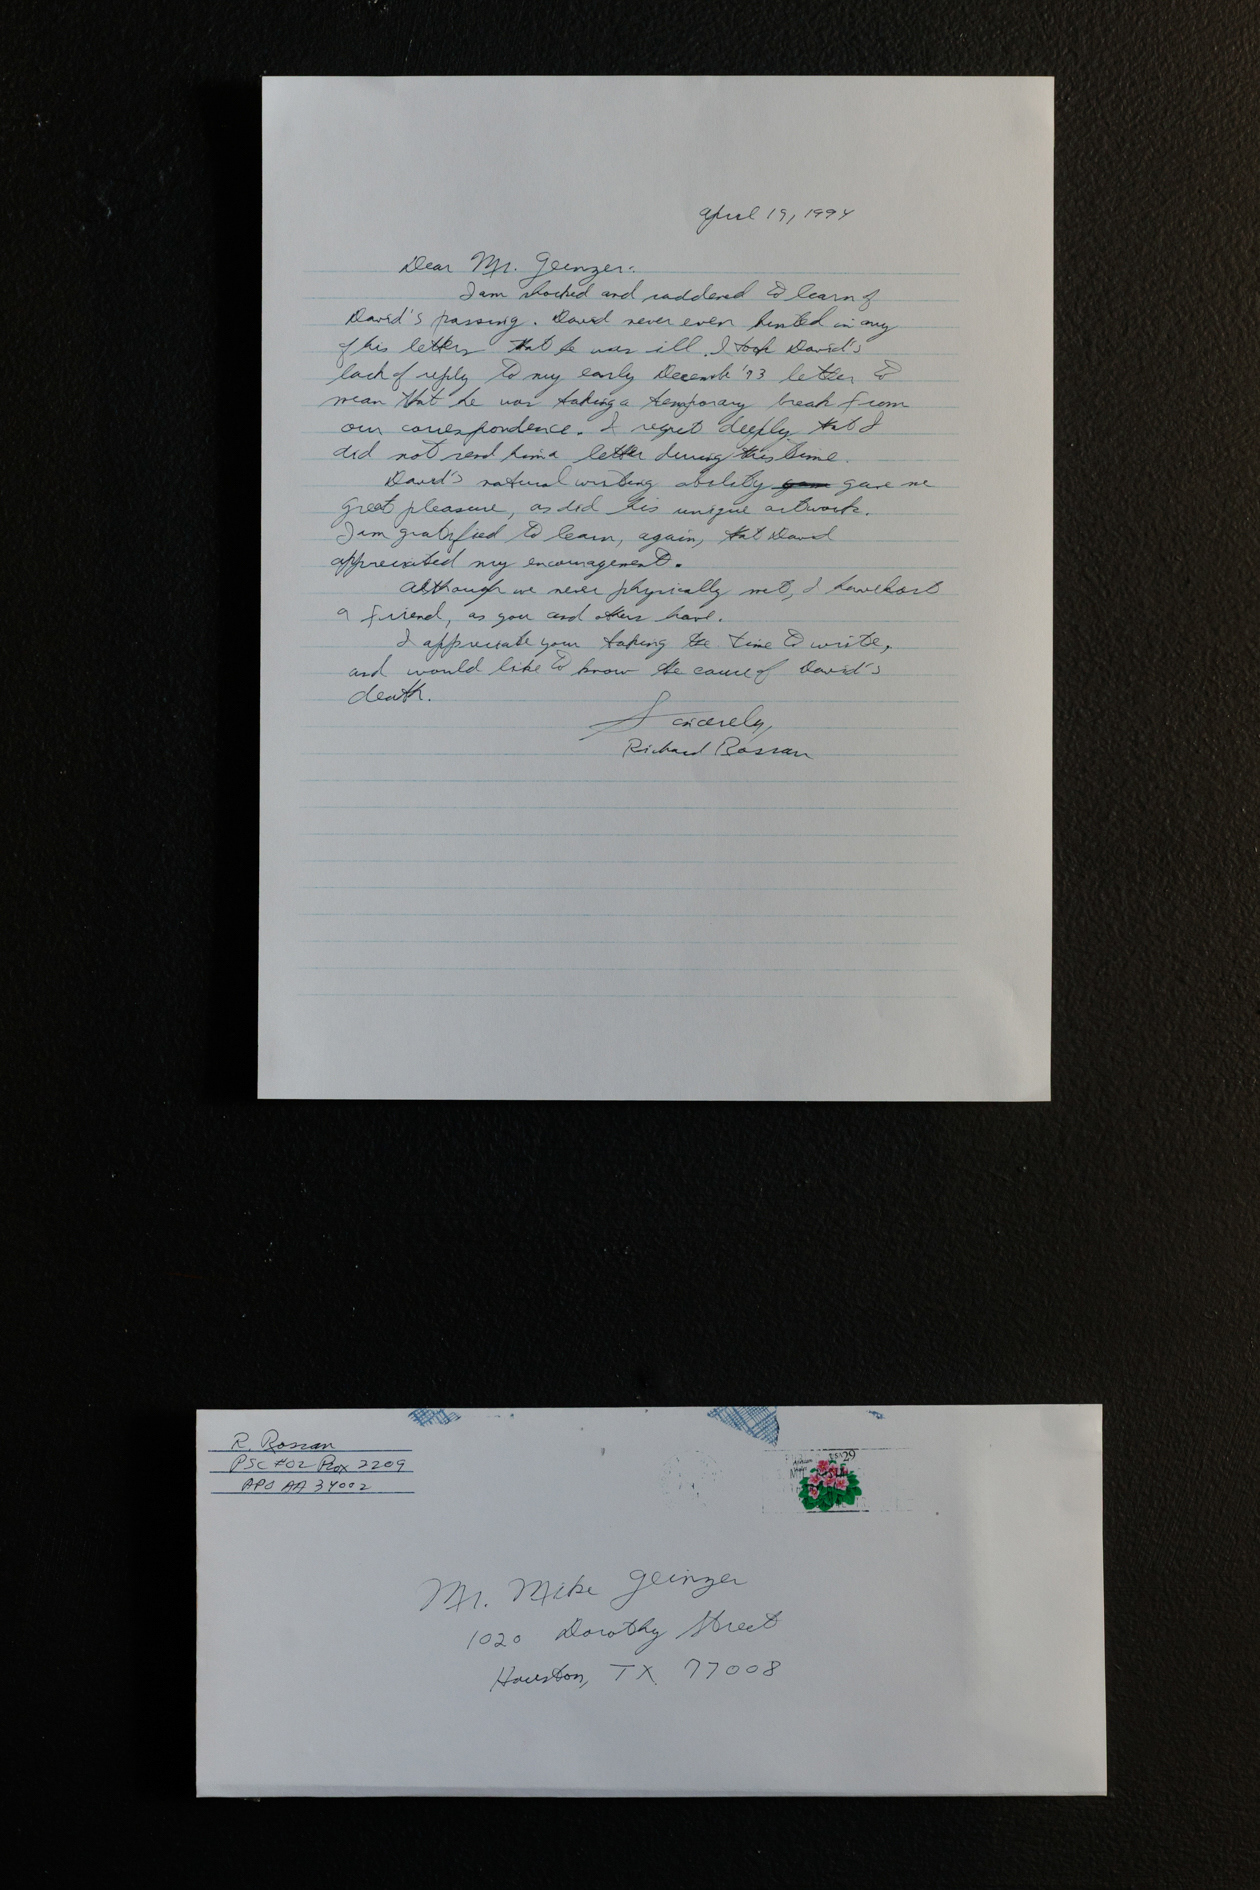 April 19, 1994
Dear Mr. Geinzer:
I am shocked and saddened to learn of
David's passing. David never even hinted in any
of his letters that he was ill. I took David's
lack of reply to my early Decemb '93 letter to
mean that he was taking a temporary break from
our correspondence. I regret deeply that I
did not send him a letter during this time.
David's natural writing ability gave me
great pleasure, as did his unique artwork.
I am gratified to learn, again, that David
appreciated my encouragement.
Although we never physically met, I have lost
a friend, as you and others have.
I appreciate your taking the time to write,
and would like to know the cause of David's
death.
Sincerely,
Richard Rossan
R. Rossan
PSC #02 Box 2209
APO AA 34002
29
Mr. Mike Geinzer
1020 Dorothy Street
Houston, TX 77008